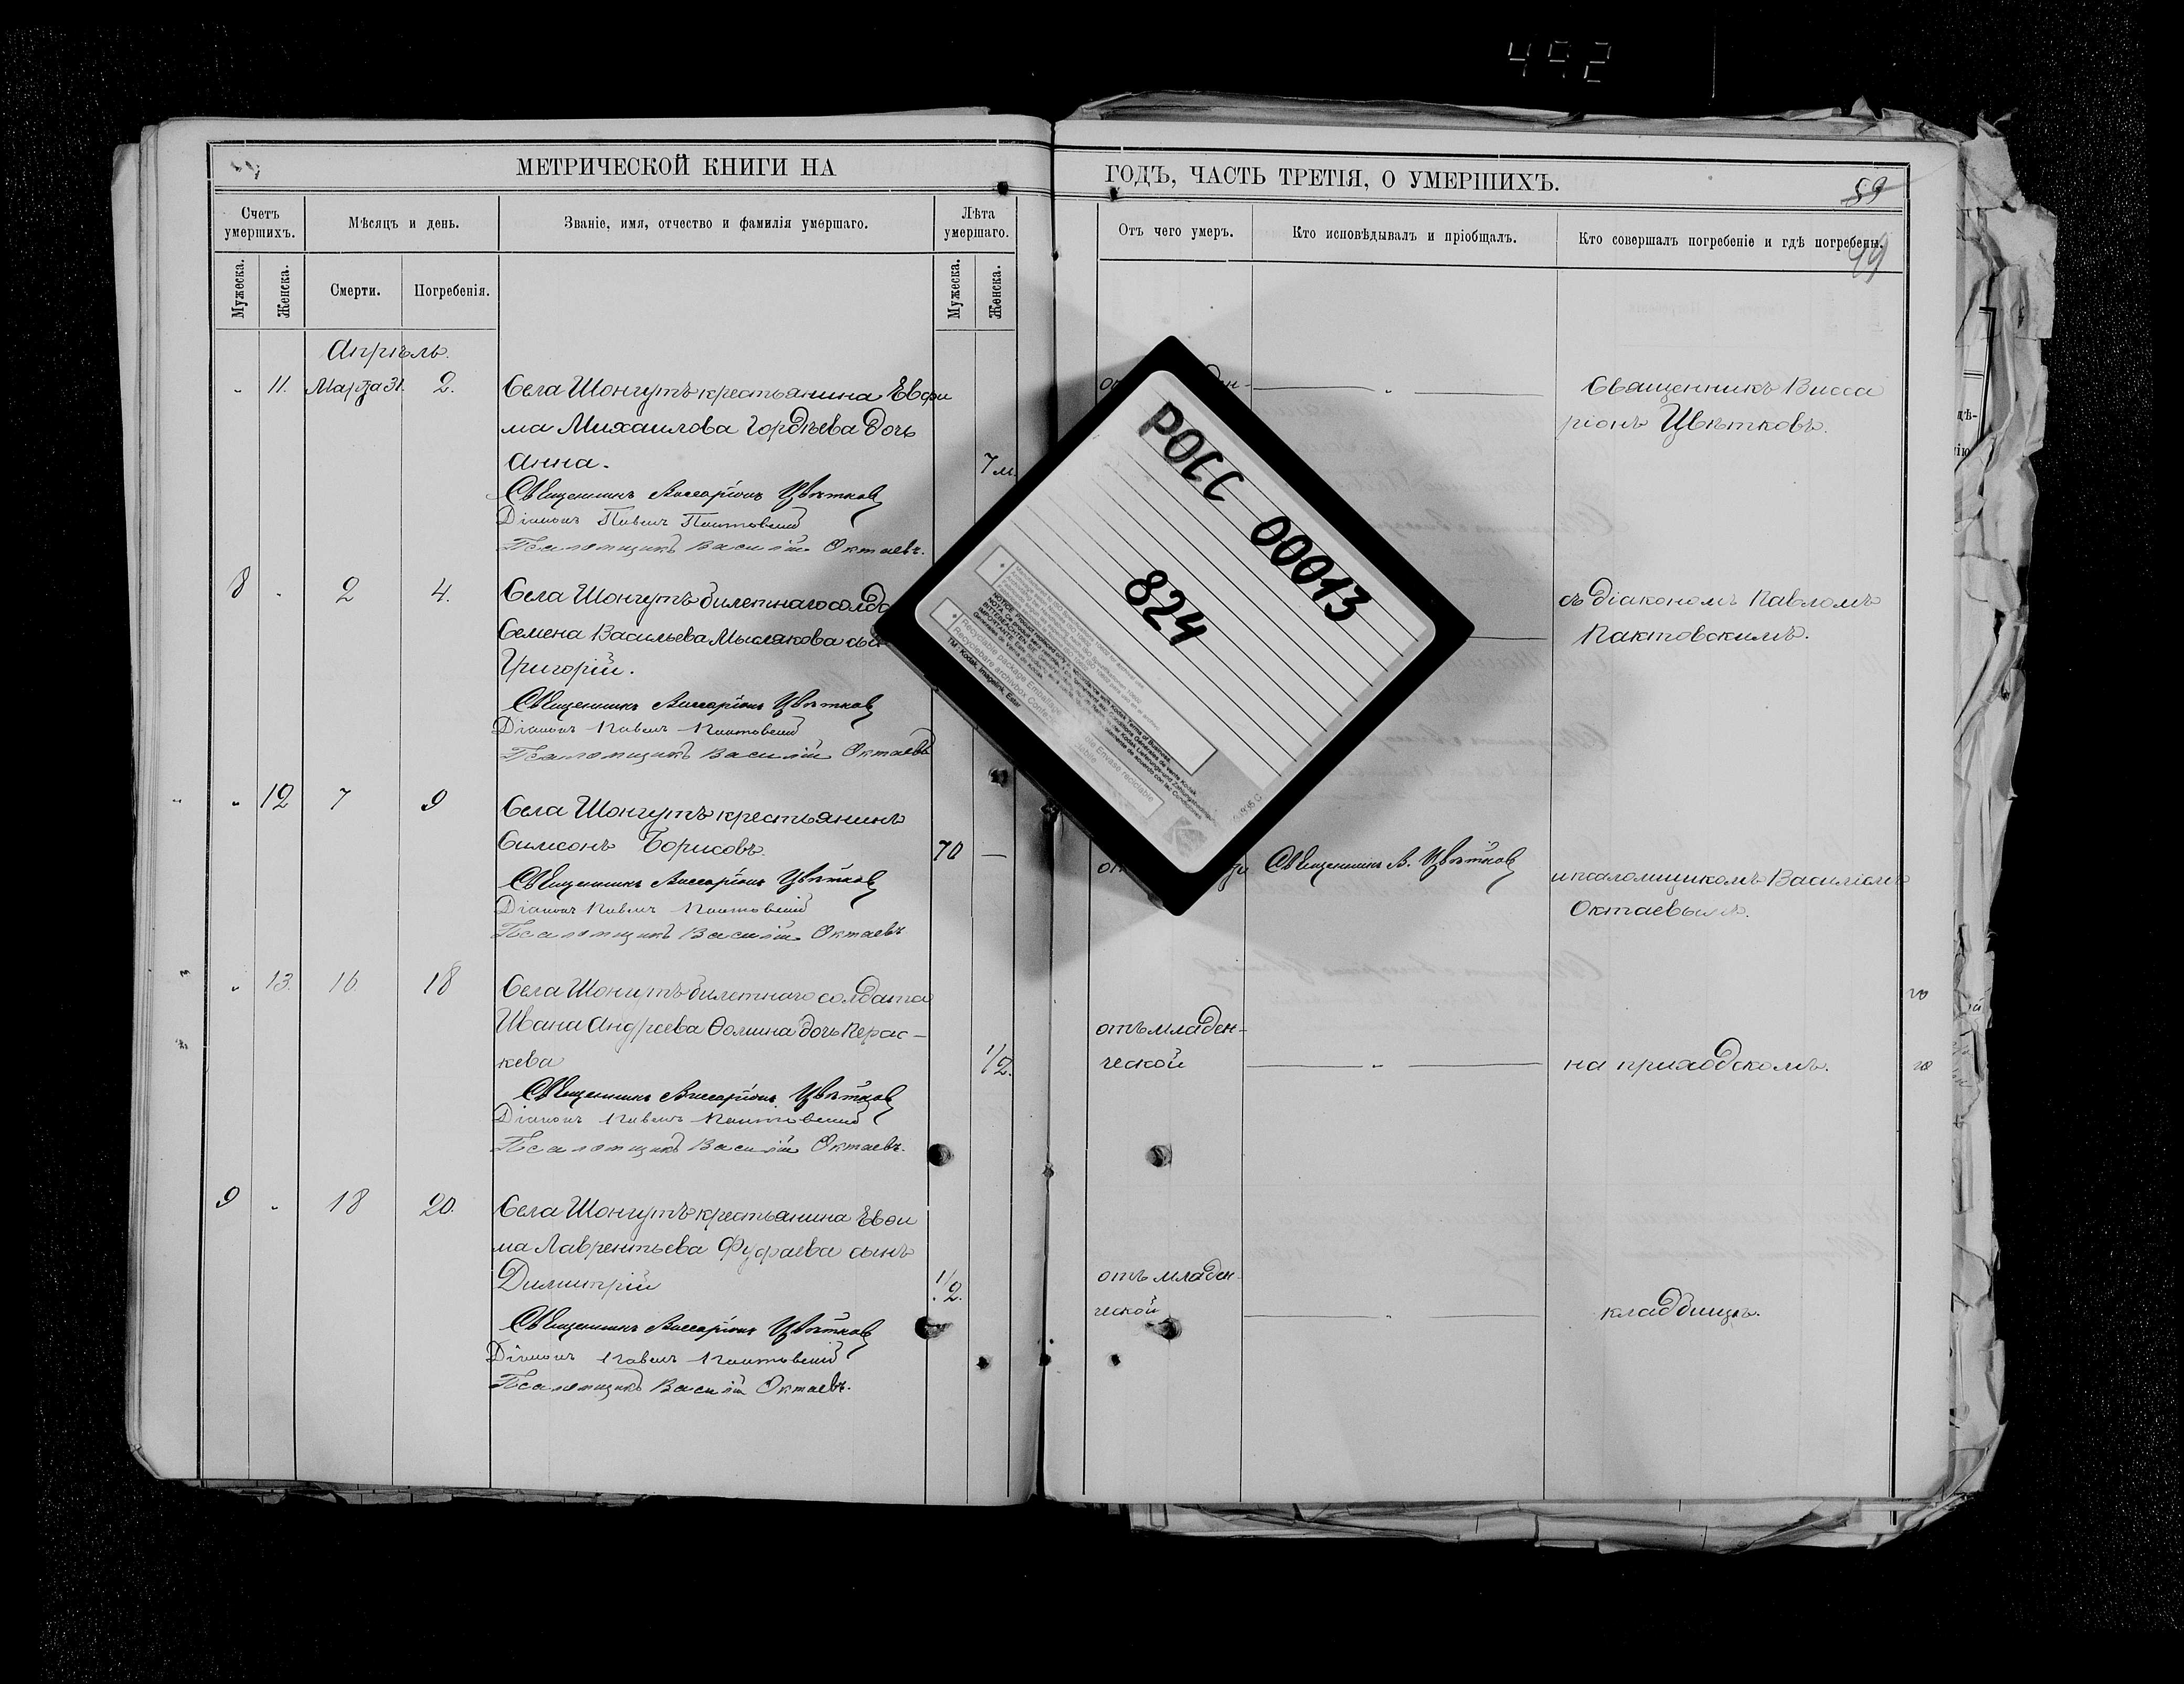 492
МЕТРИЧЕСКОЙ КНИГИ НА
ГОДЪ, ЧАСТЬ ТРЕТІЯ, О УМЕРШИХЪ.
59
49
Счетъ умершихъ.
Мѣсяцъ и день.
Званіе, имя, отчество и фамилія умершаго.
Лѣта умершаго.
Отъ чего умеръ.
Кто исповѣдывалъ и пріобщалъ.
Кто совершалъ погребеніе и гдѣ погребены.
Мужеска.
Женска.
Смерти.
Погребенія.
Мужеска.
Женска.
Апрѣль.
11. Марта 31. 2. Села Шонгутъ крестьянина Евфи
ма Михаилова Гордѣева дочь
Анна. 7 м.
Священникъ Виссаріонъ Цвѣтковъ
Діаконъ Павелъ Пактовскій
Псаломщикъ Василій Октаевъ.
Священникъ Висса
ріонъ Цвѣтковъ.
8 2 4. Села Шонгутъ билетнаго
Семена Васильева Мыслякова
Григорій.
Священникъ Виссаріонъ Цвѣтковъ
Діаконъ Павелъ Пактовскій
Псаломщикъ Василій Октаевъ
съ діакономъ Павломъ
Пактовскимъ.
12 7 9 Села Шонгутъ крестьянинъ
Симеонъ Борисовъ. 70 —
Священникъ Виссаріонъ Цвѣтковъ
Діаконъ Павелъ Пактовскій
Псаломщикъ Василій Октаевъ
Священникъ В. Цвѣтковъ
и псаломщикомъ Василіемъ
Октаевымъ.
13. 16. 18 Села Шонгутъ билетнаго солдата
Ивана Андреева Ѳомина дочь Парас-
кева 1/2.
Священникъ Виссаріонъ Цвѣтковъ
Діаконъ Павелъ Пактовскій
Псаломщикъ Василій Октаевъ.
отъ младен-
ческой
на приходскомъ.
9 18 20. Села Шонгутъ крестьянина Евѳи
ма Лаврентьева Фуфаева сынъ
Димитрій 1/2.
Священникъ Виссаріонъ Цвѣтковъ
Діаконъ Павелъ Пактовскій
Псаломщикъ Василій Октаевъ.
отъ младен-
ческой
кладбищѣ.
РОСС 00013
824